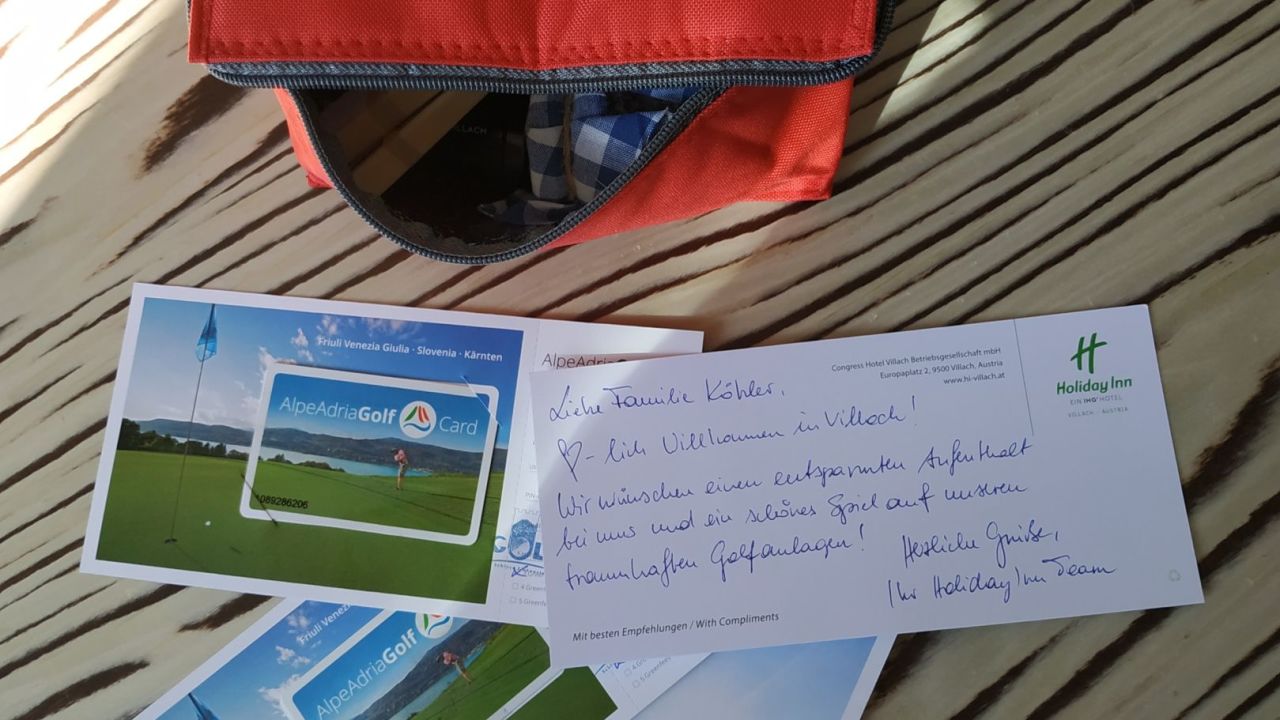 VILLACH
Friuli Venezia Giulia · Slovenia · Kärnten
AlpeAdriaGolf Card
1089286206
AlpeAdria
PIN
GOL
4 Greenf
5 Greenfe
Congress Hotel Villach Betriebsgesellschaft mbH
Europaplatz 2, 9500 Villach, Austria
www.hi-villach.at
H
Holiday Inn
EIN IHG HOTEL
VILLACH - AUSTRIA
Liebe Familie Köhler,
♡-lich Willkommen in Villach!
Wir wünschen einen entspannten Aufenthalt
bei uns und ein schönes Spiel auf unseren
traumhaften Golfanlagen!
Herzliche Grüße,
Ihr Holiday Inn Team
Mit besten Empfehlungen / With Compliments
Friuli Venezia
AlpeAdriaGolf